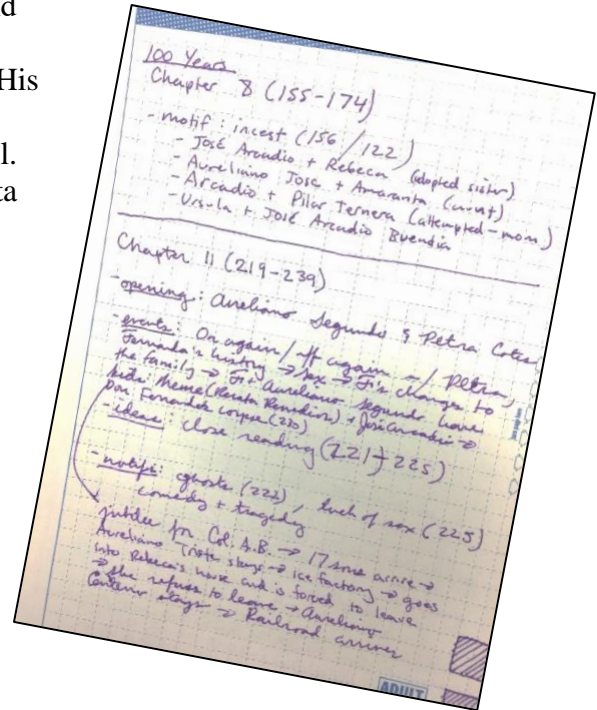 d
His
l.
ta
100 Years
Chapter 8 (155-174)
- motif: incest (156/122)
- José Arcadio + Rebeca (adopted sister)
- Aureliano José + Amaranta (aunt)
- Arcadio + Pilar Ternera (attempted-mom)
- Ursula + José Arcadio Buendia
Chapter 11 (219-239)
- opening: Aureliano Segundo & Petra Cotes
- events: On again/off again w/ Petra,
Fernanda's history → sex → F's changes to
the family → F + Aureliano Segundo have
kids: Meme (Renata Remedios) + José Arcadio →
Don Fernando's corpse (230)
- ideas: close reading (221 + 225)
- motifs: ghosts (222), lack of sex (225)
comedy + tragedy
jubilee for Col. A.B. → 17 sons arrive →
Aureliano Triste stays → ice factory → goes
into Rebeca's house and is forced to leave
→ she refuses to leave → Aureliano
Centeno stays → Railroad arrives
ADULT